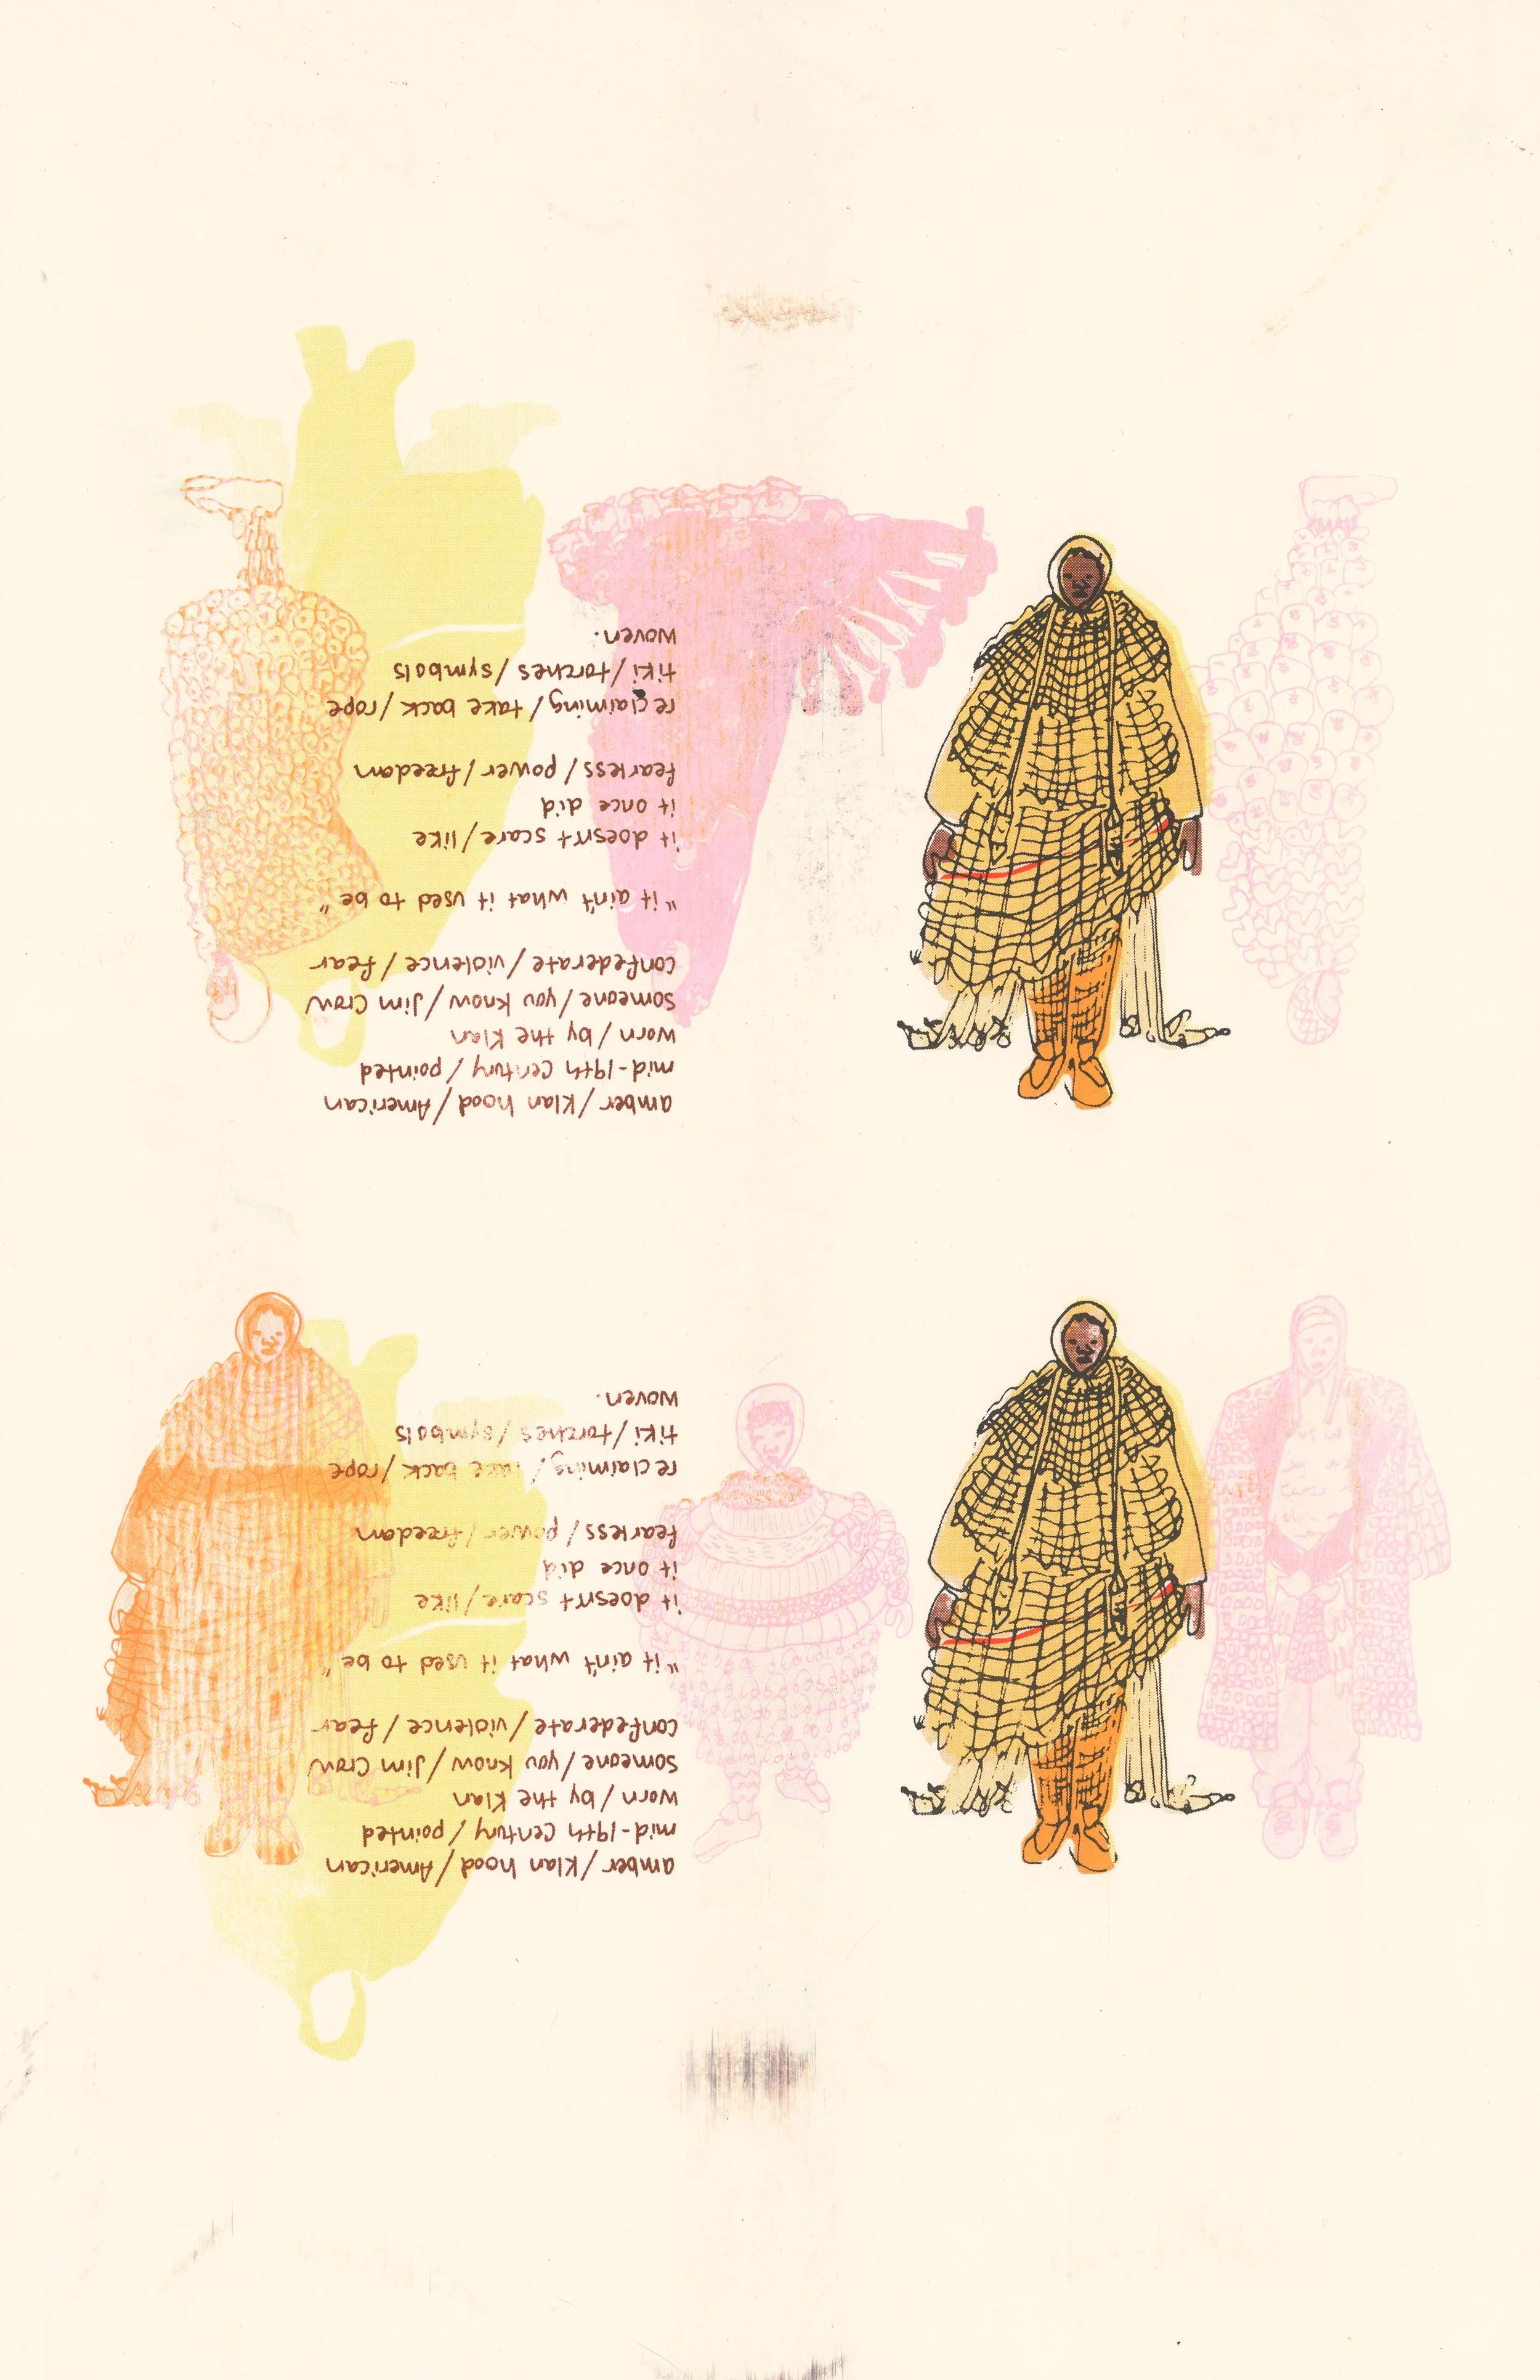 amber / Klan hood / American
mid-19th Century / pointed
worn / by the Klan
someone / you know / Jim Crow
confederate / violence / fear
"it ain't what it used to be"
it doesn't scare / like
it once did
fearless / power / freedom
reclaiming / take back / rope
tiki / torches / symbols
woven.
amber / Klan hood / American
mid-19th Century / pointed
worn / by the Klan
someone / you know / Jim Crow
confederate / violence / fear
"it ain't what it used to be"
it doesn't scare / like
it once did
fearless / power / freedom
reclaiming / take back / rope
tiki / torches / symbols
woven.